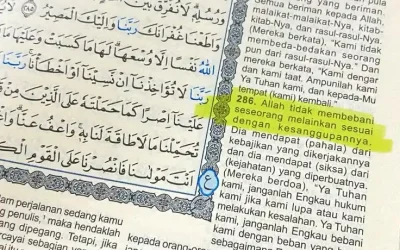 وَرُسُلِهِ لَا نُفَرِّقُ بَيْنَ
وَأَطَعْنَا غُفْرَانَكَ رَبَّنَا وَإِلَيْكَ الْمَصِيرُ
اللَّهُ نَفْسًا إِلَّا وُسْعَهَا لَهَا مَا كَسَبَتْ وَعَلَيْهَا مَا
رَبَّنَا لَا تُؤَاخِذْنَا إِنْ نَسِينَا أَوْ أَخْطَأْنَا رَبَّنَا
عَلَيْنَا إِصْرًا كَمَا حَمَلْتَهُ عَلَى الَّذِينَ مِنْ
تُحَمِّلْنَا مَا لَا طَاقَةَ لَنَا بِهِ وَاعْفُ عَنَّا وَاغْفِرْ
أَنْتَ مَوْلَانَا فَانْصُرْنَا عَلَى الْقَوْمِ
semua beriman kepada Allah,
malaikat-malaikat-Nya, kitab-
kitab-Nya, dan rasul-rasul-Nya.
(Mereka berkata), "Kami tidak
membeda-bedakan seorang
pun dari rasul-rasul-Nya." Dan
mereka berkata, "Kami dengar
dan kami taat. Ampunilah kami
Ya Tuhan kami, dan kepada-Mu
tempat (kami) kembali."
286. Allah tidak membebani
seseorang melainkan sesuai
dengan kesanggupannya.
Dia mendapat (pahala) dari
kebajikan yang dikerjakannya
dan dia mendapat (siksa) dari
(kejahatan) yang diperbuatnya.
(Mereka berdoa), "Ya Tuhan
kami, janganlah Engkau hukum
kami jika kami lupa atau kami
melakukan kesalahan. Ya Tuhan
kami, janganlah Engkau bebani
kami dengan beban yang
sebagaimana
dalam perjalanan sedang kamu
penulis,' maka hendaklah
dipegang. Tetapi, jika
percayai sebagian yang
kepada orang-orang